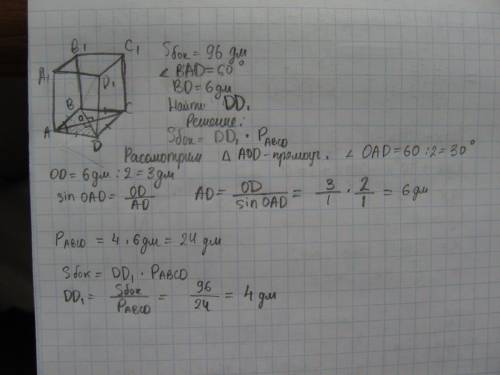 B₁ C₁
A₁ D₁
B C
A O D
Sбок = 96 дм
∠ BAD = 60°
BD = 6дм
Найти DD₁
Решение:
Sбок = DD₁ · PABCD
Рассмотрим △ AOD - прямоуг. ∠ OAD = 60 : 2 = 30°
OD = 6дм : 2 = 3дм
sin OAD = OD/AD AD = OD/sin OAD = 3/1 · 2/1 = 6дм
PABCD = 4 · 6дм = 24 дм
Sбок = DD₁ · PABCD
DD₁ = Sбок/PABCD = 96/24 = 4 дм